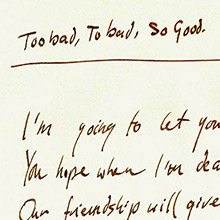 Too bad, To bad, So Good.
I'm going to let you
You hope when I'm dea
Our friendship will give